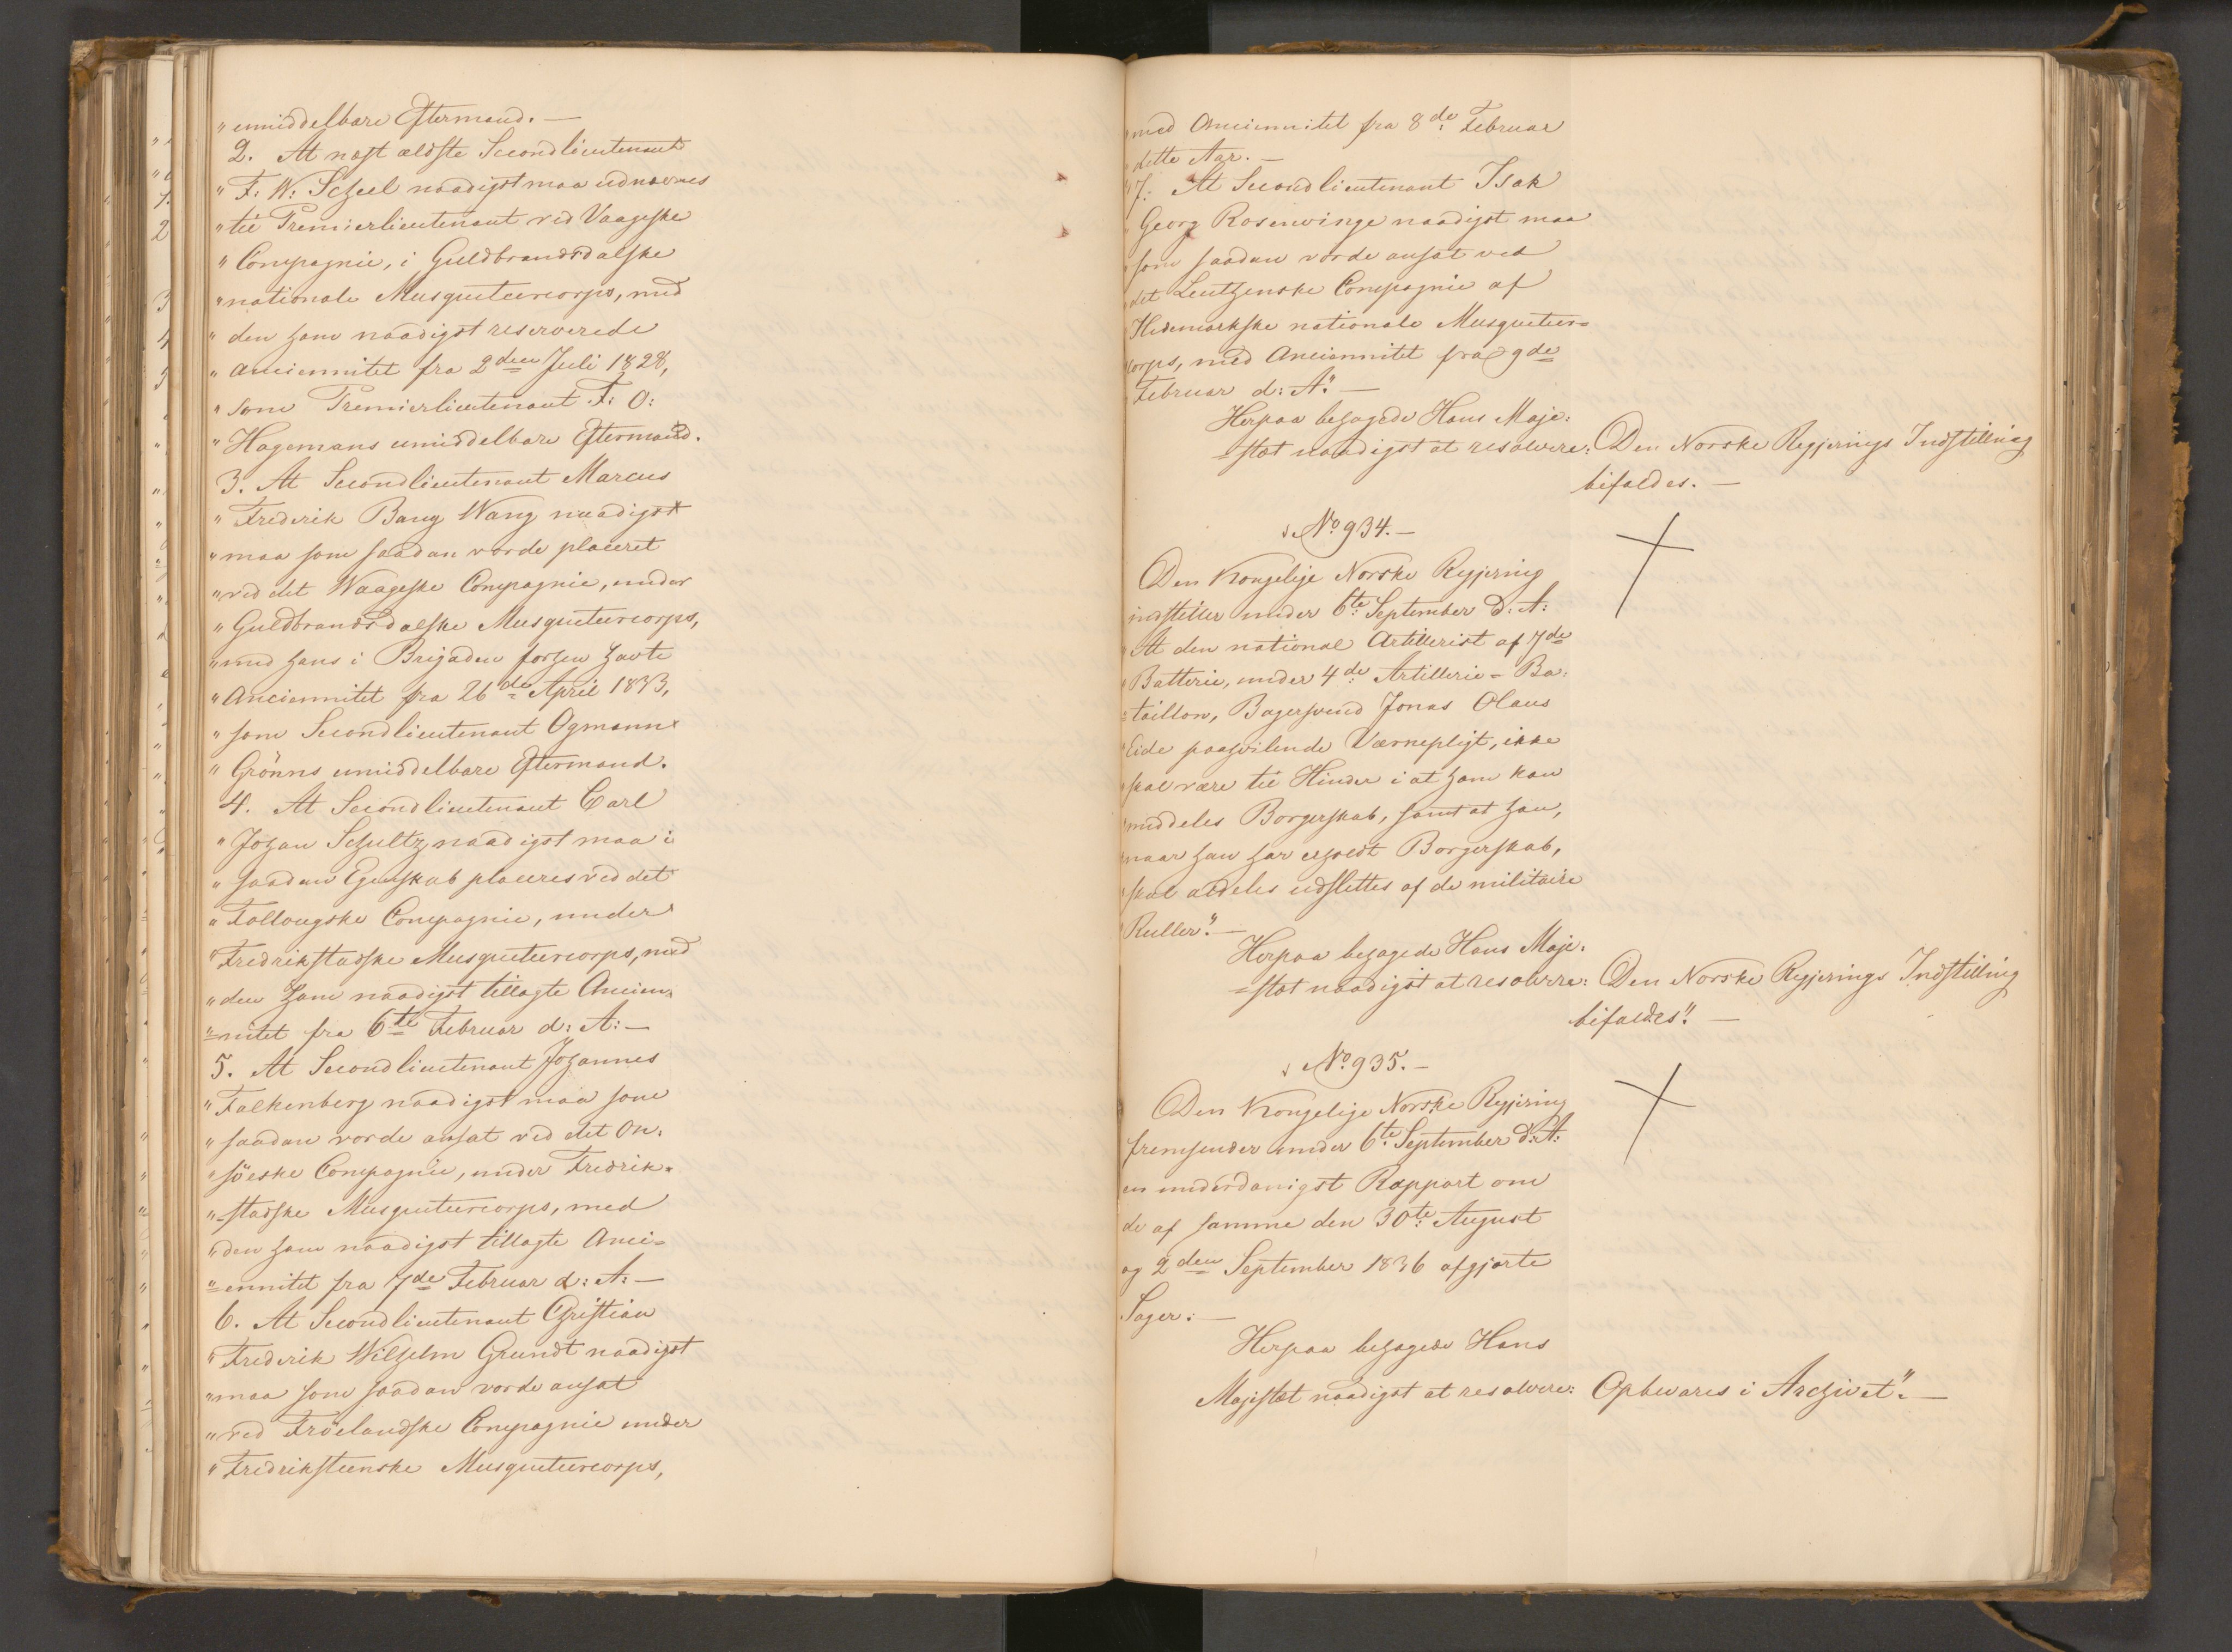 "umiddelbare Eftermand. —
2. At næst ældste Secondlieutenant
" F: W: Scheel naadigst maa udnævnes
" til Premierlieutenant ved Vaageske
" Compagnie, i Guldbrandsdalske
" nationale Musqueteercorps, med
" den ham naadigst reserverede
" Anciennitet fra 2den Juli 1828,
" som Premierlieutenant F: O:
" Hagemans umiddelbare Eftermand.
3. At Secondlieutenant Marcus
" Frederik Bang Wang naadigst
" maa som saadan vorde placeret
" ved det Waageske Compagnie, under
" Guldbrandsdalske Musqueteercorps,
" med hans i Brigaden forhen havte
" Anciennitet fra 26de April 1833,
" som Secondlieutenant Ogmann
" Grönns umiddelbare Eftermand.
4. At Secondlieutenant Carl
" Johan Schultz naadigst maa i
" saadan Egenskab placeres ved det
" Follougske Compagnie, under
" Fredrikstadske Musqueteercorps, med
" den ham naadigst tillagte Ancien-
"=nitet fra 6te Februar d: A: —
5. At Secondlieutenant Johannes
" Falkenberg naadigst maa som
" saadan vorde ansat ved det On-
" söeske Compagnie, under Fredrik-
"=stadske Musqueteercorps, med
" den ham naadigst tillagte Anci-
"=ennitet fra 7de Februar d: A: —
6. At Secondlieutenant Christian
" Frederik Wilhelm Grundt naadigst
" maa som saadan vorde ansat
" ved Fröelandske Compagnie under
" Fredriksteenske Musqueteercorps,
" med Anciennitet fra 8de Februar
" dette Aar. —
" 7. At Secondlieutenant Isak
" Georg Rosenvinge naadigst maa
" som saadan vorde ansat ved
" det Leutzenske Compagnie af
Hedemarkske nationale Musqueteer-
corps, med Anciennitet fra 9de
Februar d: A:" —
Herpaa behagede Hans Maje-
=stæt naadigst at resolvere: Den Norske Regjerings Indstilling
bifaldes. —
No 934. —
Den Kongelige Norske Regjering
indstiller under 6te September d: A:
" At den national Artillerist af 7de
" Batterie, under 4de Artillerie-Ba-
=taillon, Bagersvend Jonas Olaus
" Eide paahvilende Værnepligt, ikke
" skal være til Hinder i at ham kan
" meddeles Borgerskab, samt at han,
" naar han har erholdt Borgerskab,
" skal aldeles udslettes af de militaire
Ruller." —
Herpaa behagede Hans Maje-
=stæt naadigst at resolvere: Den Norske Regjerings Indstilling
bifaldes". —
No 935. —
Den Kongelige Norske Regjering
fremsender under 6te September d: A:
en underdanigst Rapport om
de af samme den 30te August
og 2den September 1836 afgjorte
Sager: —
Herpaa behagede Hans
Majestæt naadigst at resolvere: Opbevares i Archivet". —